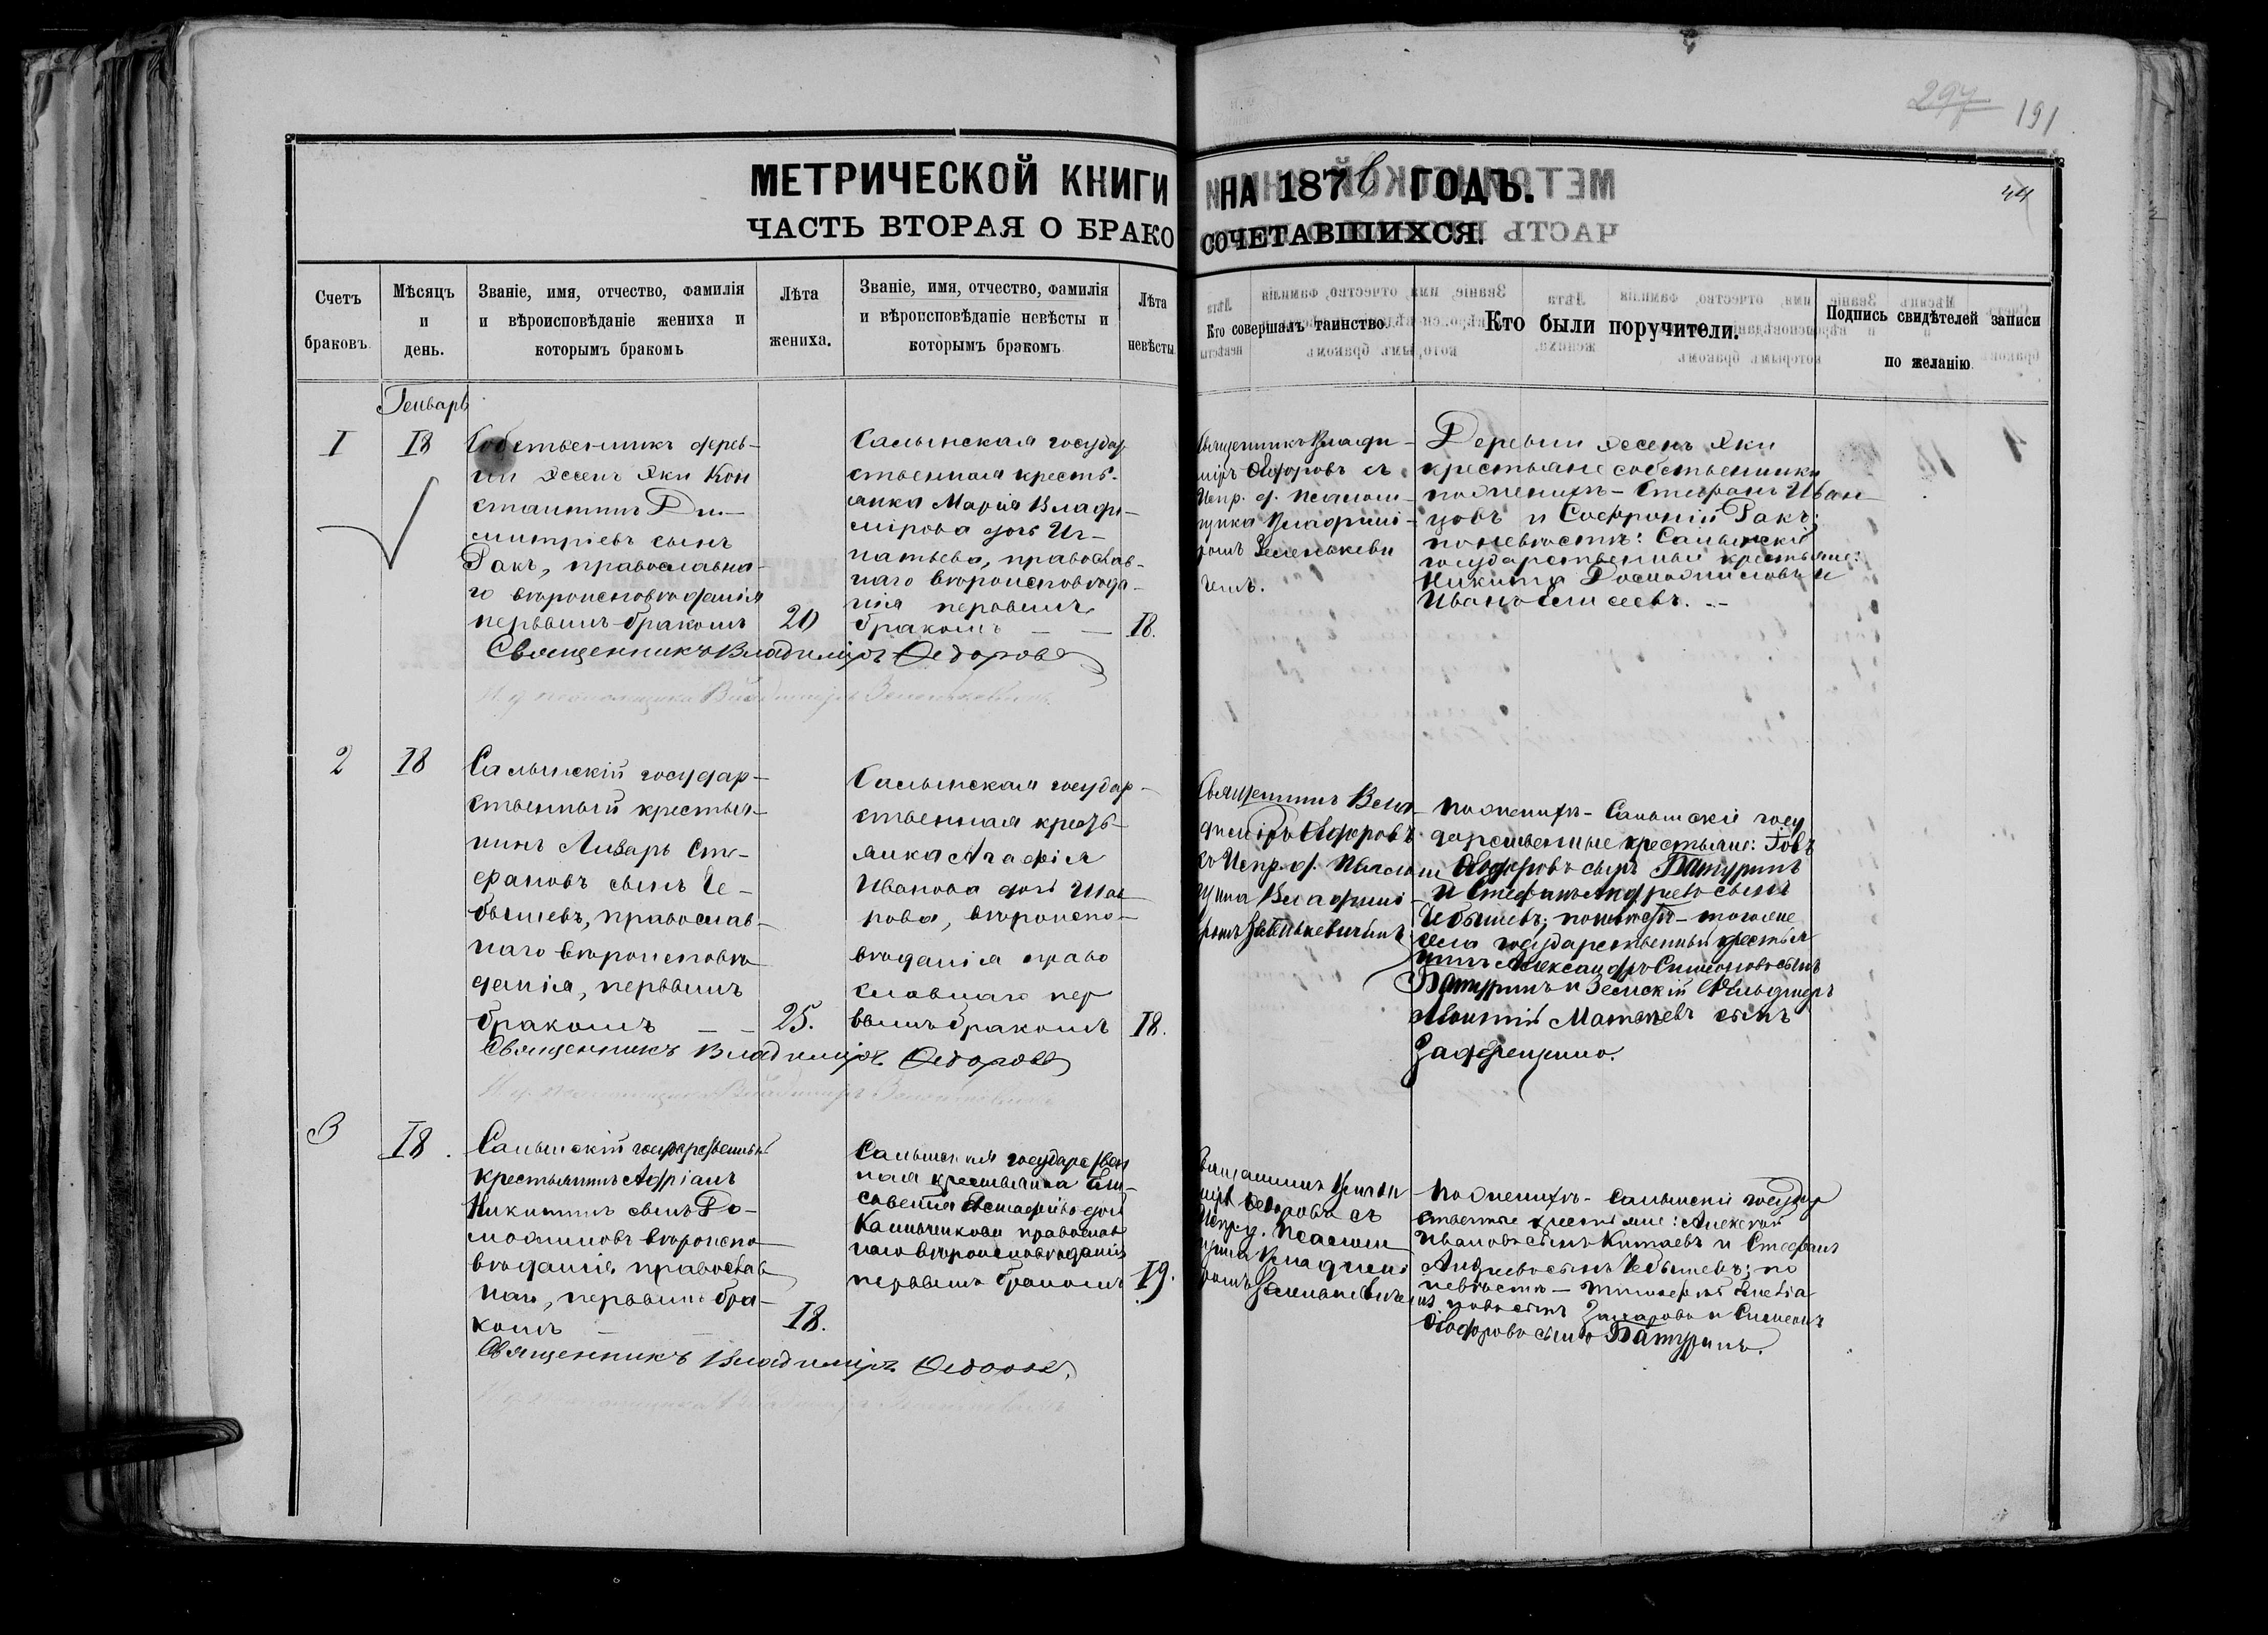 297 191
МЕТРИЧЕСКОЙ КНИГИ НА 1876 ГОДЪ.
44
ЧАСТЬ ВТОРАЯ О БРАКОСОЧЕТАВШИХСЯ.
Счетъ браковъ.
Мѣсяцъ и день.
Званіе, имя, отчество, фамилія
и вѣроисповѣданіе жениха и
которымъ бракомъ
Лѣта жениха.
Званіе, имя, отчество, фамилія
и вѣроисповѣданіе невѣсты и
которымъ бракомъ
Лѣта невѣсты.
Кто совершалъ таинство.
Кто были поручители.
Подпись свидѣтелей записи
по желанію.
Генварь
1
18
Собственникъ дерев-
ни Эссенъ Эки Кон
стантинъ Ди-
митріевъ сынъ
Ракъ, православна-
го вѣроисповѣданія
первымъ бракомъ
20
Салынская государ
ственная кресть-
янка Марія Влади-
мірова дочь Иг-
натьева, православ-
наго вѣроисповѣда-
нія первымъ
бракомъ
18.
Священникъ Влади-
міръ Ѳедоровъ съ
Испр. д. псалом-
щика Владимі-
ромъ Зеленькеви
чемъ.
Деревни Эссенъ Эки
крестьяне собственники
по женихѣ - Стефанъ Иван
цовъ и Софроній Ракъ;
по невѣстѣ: Салынскіе
государственные крестьяне:
Никита и
Иванъ Елисеевъ.
Священникъ Владиміръ Ѳедоровъ
И. д. псаломщика Владиміръ Зеленькевичъ
2
18
Салынскій государ-
ственный крестья-
нинъ Лазарь Сте-
фановъ сынъ Че-
бышевъ, православ-
наго вѣроисповѣ
данія, первымъ
бракомъ
25.
Салынская государ-
ственная кресть-
янка Агафія
Иванова дочь
рова, вѣроиспо-
вѣданія право
славнаго пер
вымъ бракомъ
18.
Священникъ Вла
диміръ Ѳедоровъ
съ Испр. д. Псалом
щика Владимі-
ромъ Зеленькевичемъ
по женихѣ - Салынскіе госу
дарственные крестьяне: Іовъ
Ѳедоровъ сынъ Батуринъ
и Стефанъ Андреевъ сынъ
Чебышевъ; по невѣстѣ - того же
села государственный крестья
нинъ Александръ Симеоновъ сынъ
Батуринъ и Земскій Фельдшеръ
Леонтій Матвѣевъ сынъ
Священникъ Владиміръ Ѳедоровъ
И. д. псаломщика Владиміръ Зеленькевичъ
3
18.
Салынскій государственный
крестьянинъ Адріанъ
Никитинъ сынъ
вѣроиспо
вѣданія православ
наго, первымъ бра-
комъ
18.
Салынская государствен
ная крестьянка Ели-
савета Евстафіева дочь
Калмыченкова православ
наго вѣроисповѣданія
первымъ бракомъ
19.
Священникъ Влади
міръ Ѳедоровъ съ
Испр. д. Псалом
щика Владимі
ромъ Зеленькевичемъ
По женихѣ - Салынскіе государ
ственные крестьяне: Алексѣй
Ивановъ сынъ Китаевъ и Стефанъ
Андреевъ сынъ Чебышевъ; по
невѣстѣ -
сынъ Захаровъ и Симеонъ
Ѳедоровъ сынъ Батуринъ.
Священникъ Владиміръ Ѳедоровъ.